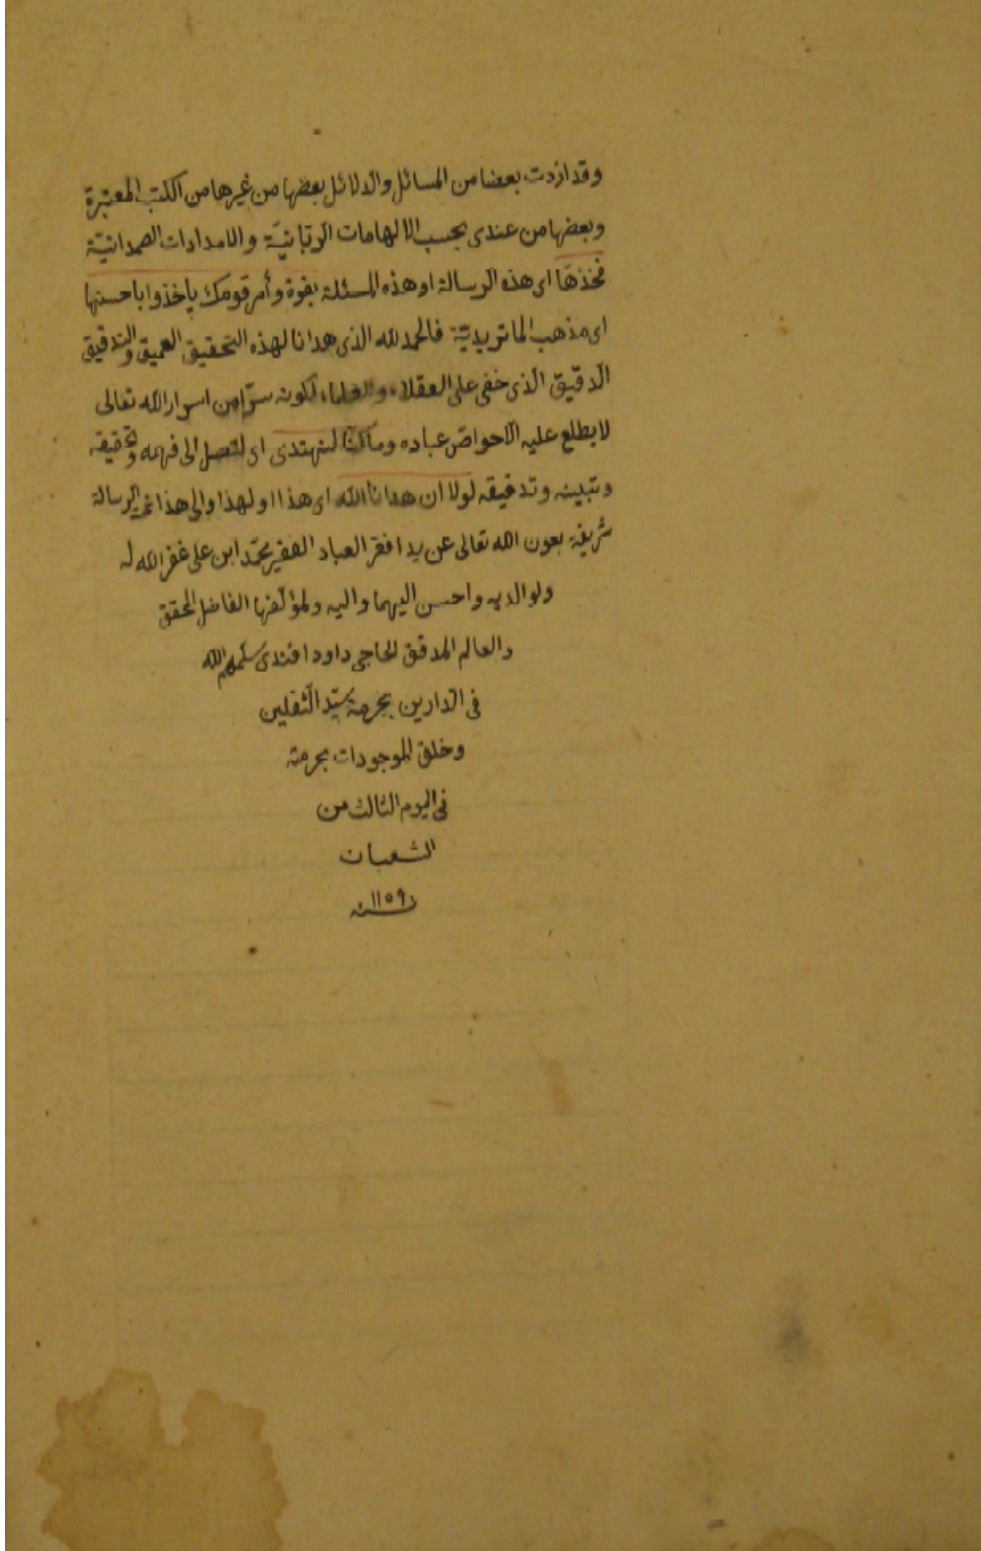 وقد ازدت بعضا من المسائل والدلائل بعضها من غيرها من الكتب المعتبرة
وبعضها من عندى بحسب الالهامات الربّانيّة والامدادات الصمدانيّة
فخذها اى هذه الرسالة او هذه المسئلة بقوة وأمر قومك ياخذوا باحسنها
اى مذهب الماتريديّة فالحمد لله الذى هدانا لهذه التحقيق العميق والتدقيق
الدقيق الذى خفى على العقلاء والعلماء لكونه سرّا من اسرار الله تعالى
لا يطلع عليه الا خواصّ عباده وما كنّا لنهتدى اى لنصل الى فهمه وتحقيقه
وتبينه وتدقيقه لولا ان هدانا الله اى هذا او لهذا والى هذا تم الرسالة
شريفة بعون الله تعالى عن يد افقر العباد الفقير محمّد ابن على غفر الله له
ولوالديه واحسن اليهما واليه ولمؤلّفها الفاضل المحقق
والعالم المدقق الحاجى داود افندى سلّمهم الله
فى الدارين بحرمة سيّد الثقلين
وخلق الموجودات بحرمته
فى اليوم الثالث من
الشعبان
سنه ١١٥٩